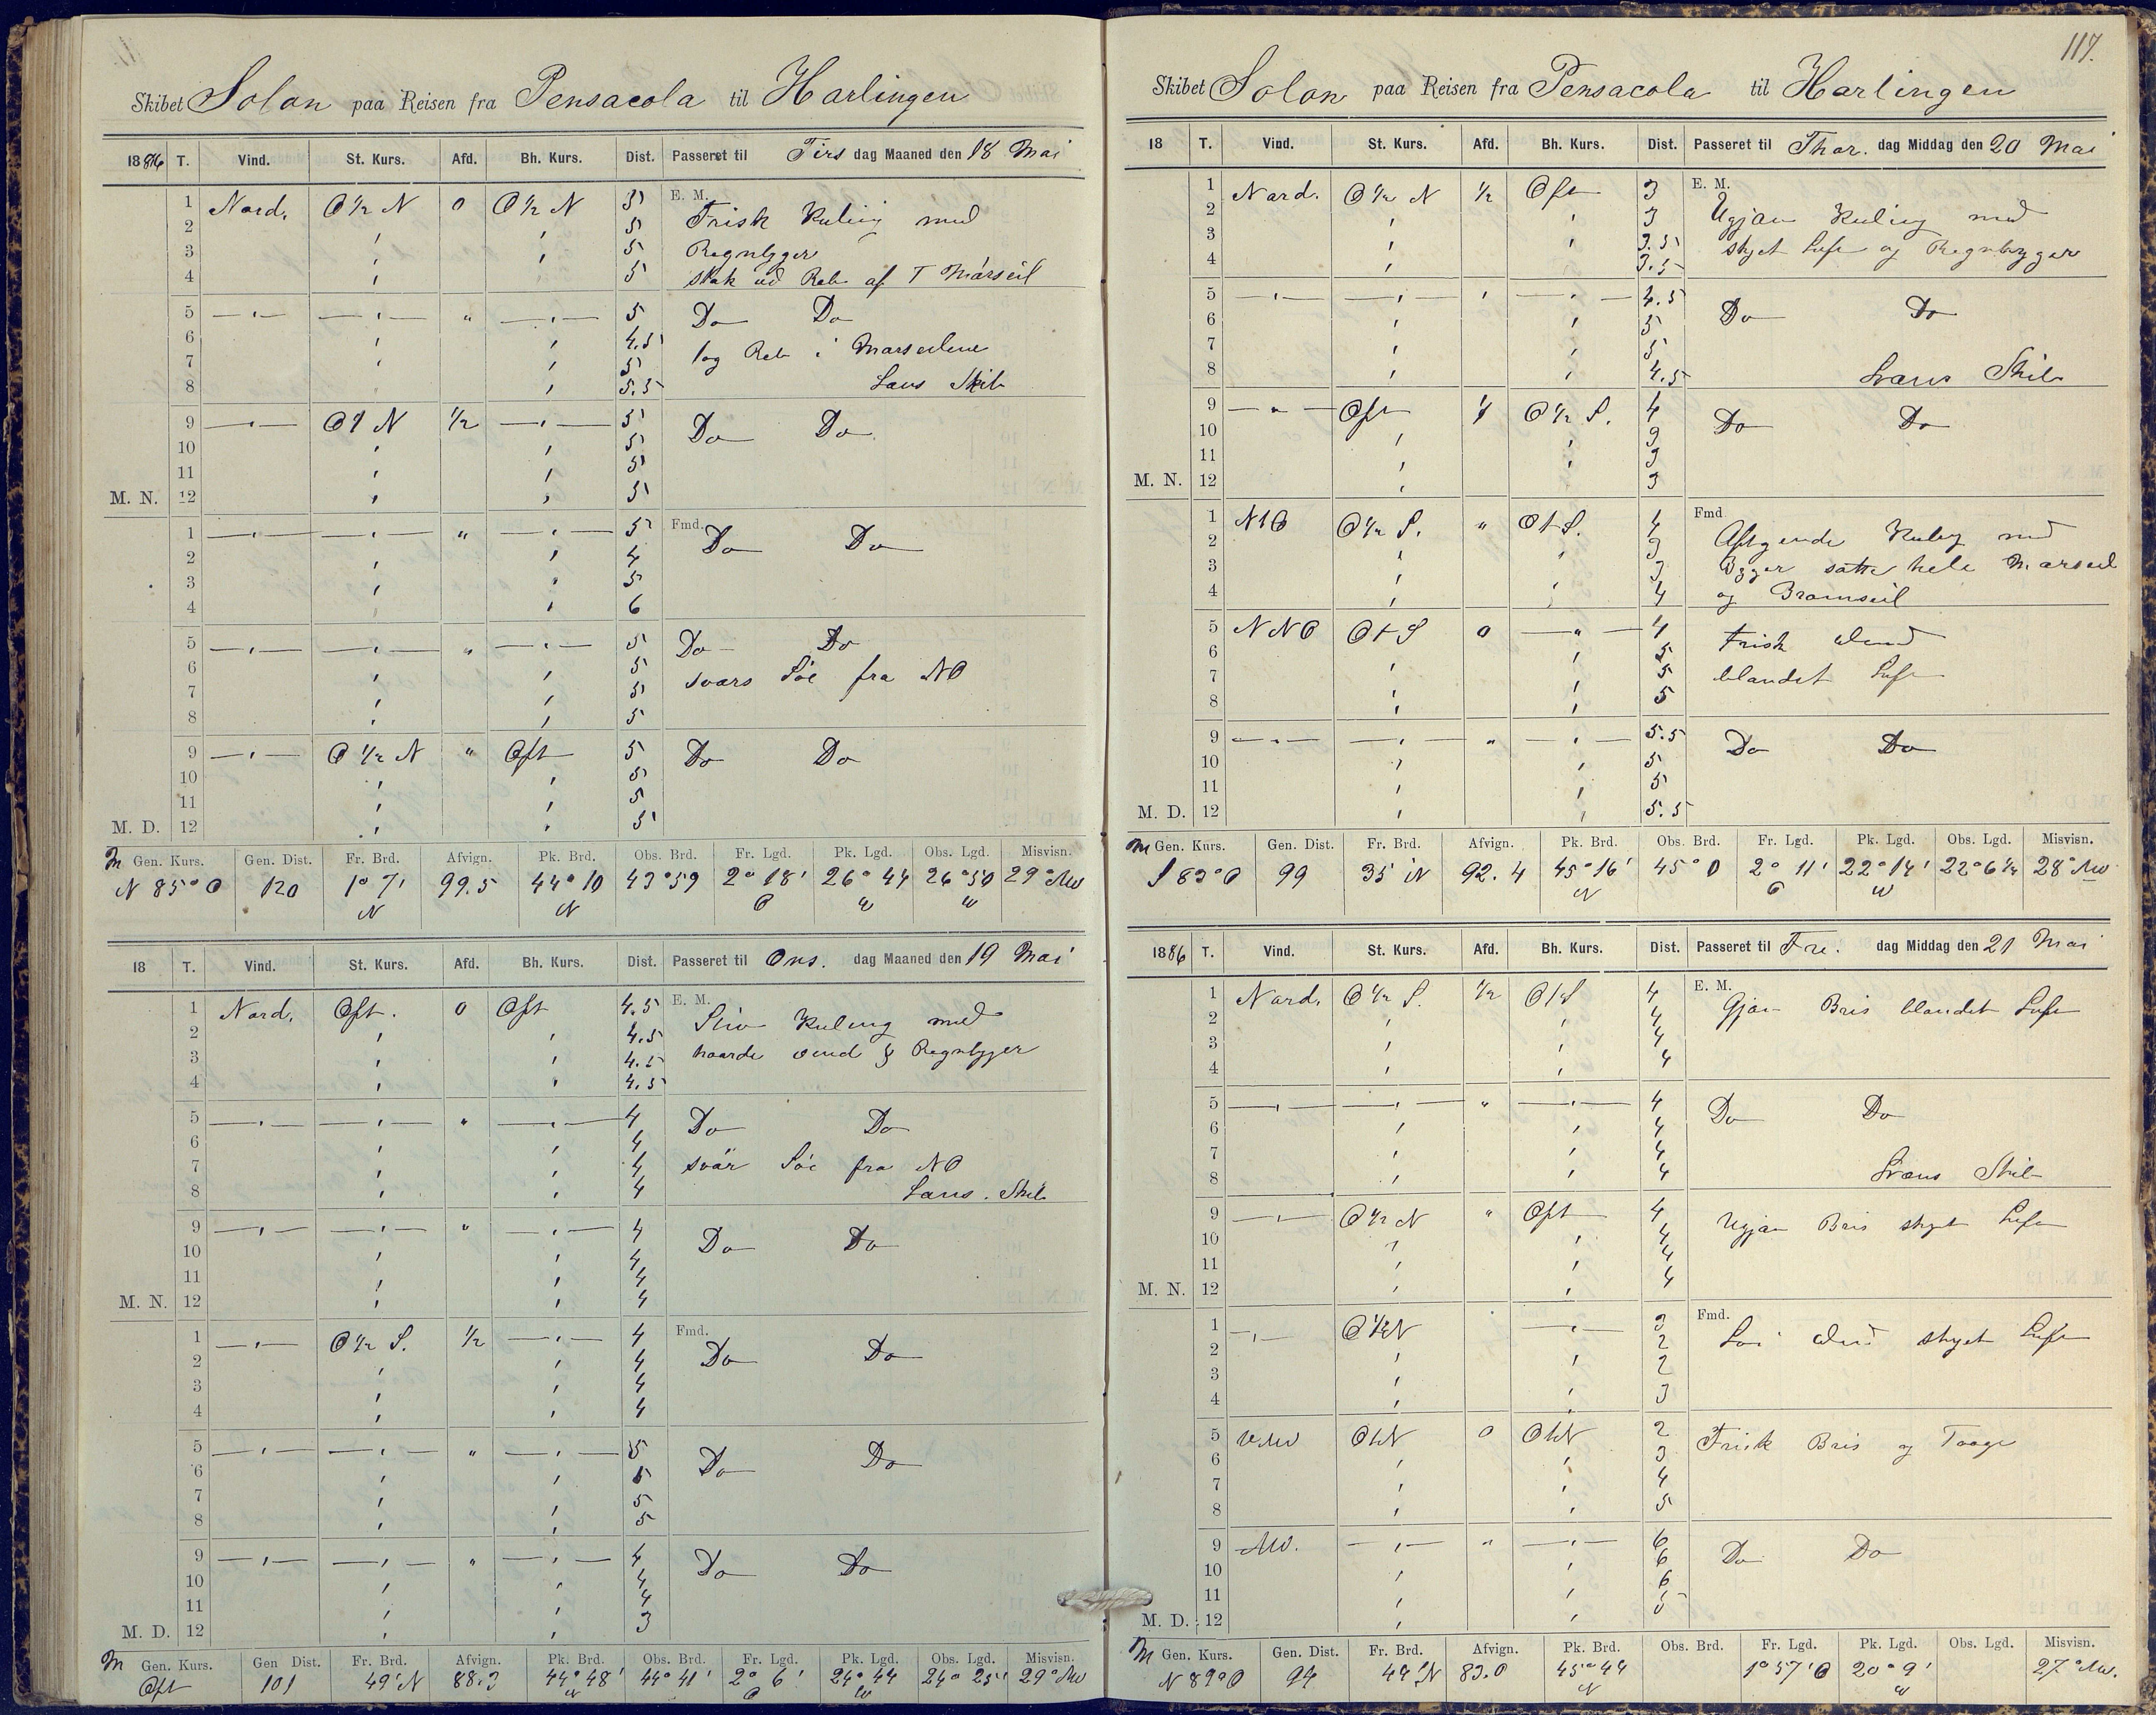 Skibet Solon paa Reisen fra Pensacola til Harlingen
1886 T. Vind. St. Kurs. Afd. Bh. Kurs. Dist. Passeret til Tirs dag Maaned den 18 Mai
1 Nord. O ½ N 0 O ½ N 5 E. M.
2 5 Frisk Kuling med
3 5 Regnbyger
4 5 stak ud Reb af T Märseil
5 5 Do Do
6 4.5
7 5 tog Reb i Marseilene
8 5.5 Læns Skib
9 O 1 N ½ 5 Do Do
10 5
11 5
M. N. 12 5
1 " 5 Fmd. Do Do
2 4
3 5
4 6
5 " 5 Do Do
6 5 svars Söe fra NO
7 5
8 5
9 O ½ N " Ost 5 Do Do
10 5
11 5
M. D. 12 5
M Gen. Kurs. Gen. Dist. Fr. Brd. Afvign. Pk. Brd. Obs. Brd. Fr. Lgd. Pk. Lgd. Obs. Lgd. Misvisn.
N 85° O 120 1° 7' 99.5 44° 10 43° 59 2° 18' 26° 44 26° 50 29° NW
N N O W W
18 T. Vind. St. Kurs. Afd. Bh. Kurs. Dist. Passeret til Ons. dag Maaned den 19 Mai
1 Nord. Ost. 0 Ost 4.5 E. M.
2 4.5 Stiv Kuling med
3 4.5 haarde vind & Regnbyger
4 4.5
5 " 4 Do Do
6 4
7 4 svär Söe fra NO
8 4 Læns. Skib
9 " 4 Do Do
10 4
11 4
M. N. 12 4
1 O ½ S. ½ 4 Fmd.
2 4 Do Do
3 4
4 4
5 " 5 Do Do
6 5
7 5
8 5
9 " 4 Do Do
10 4
11 4
M. D. 12 3
M Gen. Kurs. Gen Dist. Fr. Brd. Afvign. Pk. Brd. Obs. Brd. Fr. Lgd. Pk. Lgd. Obs. Lgd. Misvisn.
Ost 101 49' N 88.3 44° 48' 44° 41' 2° 6' 24° 44 24° 25' 29° NW
N O W
117.
Skibet Solon paa Reisen fra Pensacola til Harlingen
18 T. Vind. St. Kurs. Afd. Bh. Kurs. Dist. Passeret til Thor. dag Middag den 20 Mai
1 Nord. O ½ N ½ Ost 3 E. M.
2 3 Ugjæv Kuling med
3 3.5 skyet Luft og Regnbyger
4 3.5
5 4.5 Do Do
6 5
7 5
8 4.5 Læns Skib
9 " Ost O ½ S. 4 Do Do
10 3
11 3
M. N. 12 3
1 N 1 O O ½ S. " O 1 S. 4 Fmd
2 3 Aftgende Kuling med
3 3 Byger satte hele Marseil
4 4 og Bramseil
5 NNO O 1 S 0 " 4 Frisk Vind
6 5
7 5 blandet Luft
8 5
9 " " 5.5 Do Do
10 5
11 5
M. D. 12 5.5
M Gen. Kurs. Gen. Dist. Fr. Brd. Afvign. Pk. Brd. Obs. Brd. Fr. Lgd. Pk. Lgd. Obs. Lgd. Misvisn.
S 83° O 99 35 N 92.4 45° 16' 45° 0 2° 11' 22° 14' 22° 6 ½ 28° NW
N O W
1886 T. Vind. St. Kurs. Afd. Bh. Kurs. Dist. Passeret til Fre. dag Middag den 21 Mai
1 Nord. O ½ S. ½ O 1 S 4 E. M.
2 4 Gjæv Bris blandet Luft
3 4
4 4
5 " 4 Do Do
6 4
7 4
8 4 Læns Skib
9 O ½ N " Ost 4 Ugjæv Bris skyet Luft
10 4
11 4
M. N. 12 4
1 O ½ N 3 Fmd.
2 2 Löi Vind skyet Luft
3 2
4 3
5 O 1 N 0 O 1 N 2 Frisk Bris og Taage
6 3
7 4
8 5
9 NW. " 6 Do Do
10 6
11 6
M. D. 12
M Gen. Kurs. Gen. Dist. Fr. Brd. Afvign. Pk. Brd. Obs. Brd. Fr. Lgd. Pk. Lgd. Obs. Lgd. Misvisn.
N 89° O 94 44' N 83.0 45° 44 1° 57' O 20° 9' 27° NW.
N W